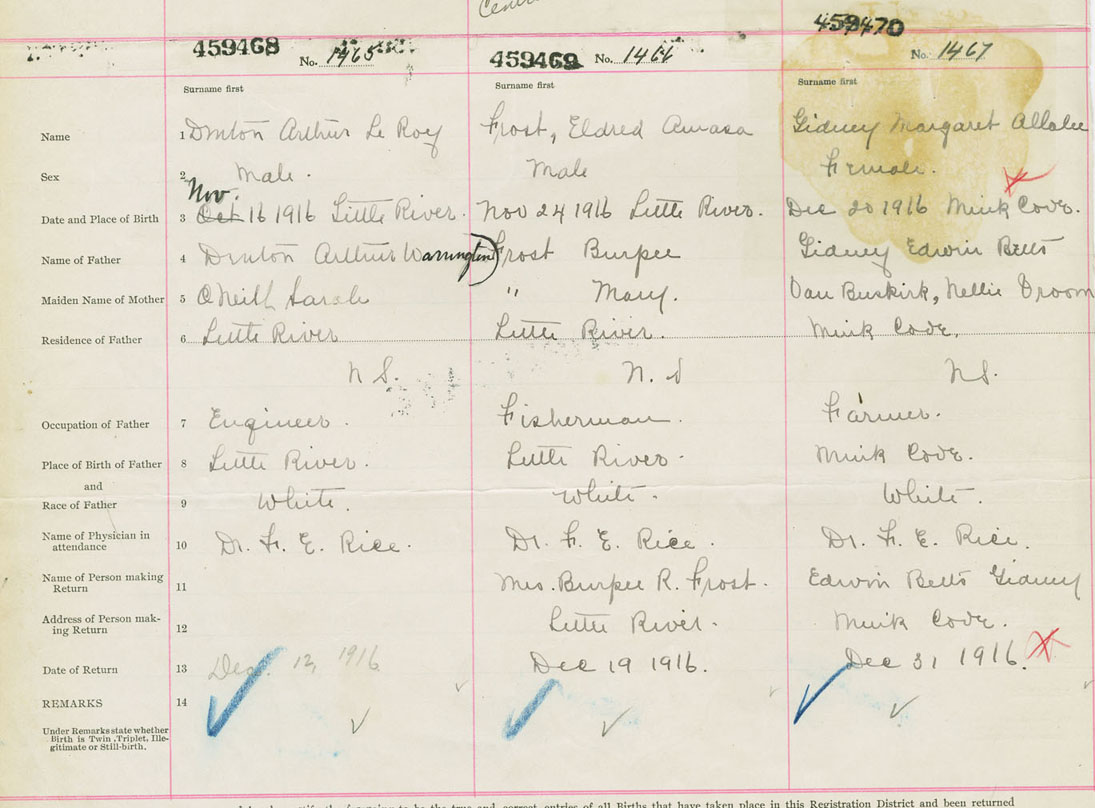 459468 No. 1465 459469 No. 1466 459470 No. 1467
Surname first Surname first Surname first
Name 1 Denton Arthur Le Roy Frost, Eldred Amasa Gidney Margaret
Sex 2 Male. Male Female.
Nov.
Date and Place of Birth 3 Oct 16 1916 Little River. Nov 24 1916 Little River. Dec 20 1916 Mink Cove.
Name of Father 4 Denton Arthur Warrington) Frost Burpee Gidney Edwin Betts
Maiden Name of Mother 5 O'Neill Sarah " Mary. Van Buskirk, Nellie Vroom
Residence of Father 6 Little River Little River. Mink Cove.
N S. N. S N S.
Occupation of Father 7 Engineer. Fisherman. Farmer.
Place of Birth of Father 8 Little River. Little River. Mink Cove.
and
Race of Father 9 White. White. White.
Name of Physician in
attendance 10 Dr. F. E. Rice. Dr. F. E. Rice. Dr. F. E. Rice.
Name of Person making
Return 11 Mrs. Burpee R. Frost. Edwin Betts Gidney
Address of Person mak-
ing Return 12 Little River. Mink Cove.
Date of Return 13 Dec. 12, 1916 Dec 19 1916. Dec 31 1916.
REMARKS 14
Under Remarks state whether
Birth is Twin, Triplet, Ille-
gitimate or Still-birth.
entries of all Births that have taken place in this Registration District and been returned